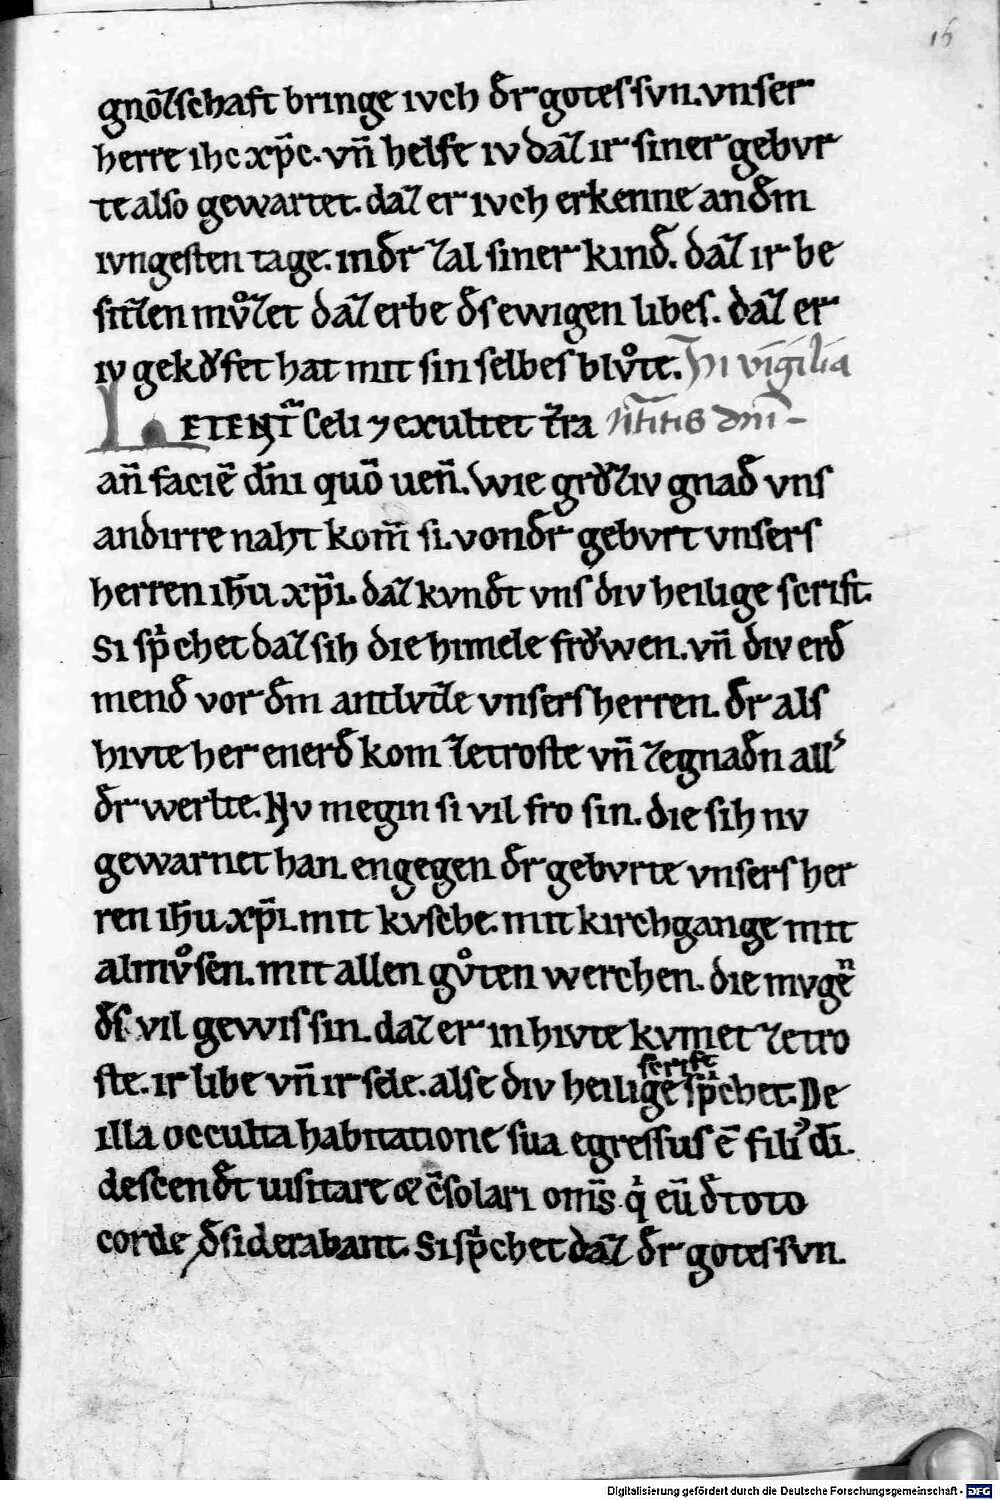 16
gnőzschaft bringe ivch d̄r gotes svn. vnser
herre ihc xp̄c. vn̄ helfe iv daz ir siner gebvr
te also gewartet. daz er ivch erkenne an d̄m
ivngesten tage. in d̄r zal siner kind̄. daz ir be
sitzen mv̊zet daz erbe d̄s ewigen libes. daz er
iv gekǒfet hat mit sin selbes blv̊te. In vigilia
Letent̄ Celi ⁊ exultet t̄ra n̄t̄itis dn̄i
an̄ faciē dn̄i quō uen̄. Wie grǒziv gnad̄ vns
an dirre naht kom̄ si. von d̄r gebvrt vnsers
herren ih̄u xp̄i. daz kvnd̄t vns div heilige scrift.
Si sp̄chet daz sih die himele frǒwen. vn̄ div erd̄
mend̄ vor d̄m antlvtze vnsers herren. d̄r als
hivte her en erd̄ kom ze troste vn̄ ze gnad̄n all᾽
d̄r werlte. Nv megin si vil fro sin. die sih nv
gewarnet han. engegen d̄r gebvrte vnsers her
ren ih̄u xp̄i. mit kvsche. mit kirchgange mit
almv̊sen. mit allen gv̊ten werchen. die mvgeⁿ
d̄s vil gewis sin. daz er in hivte kvmet ze tro
ste. ir libe vn̄ ir sele. alse div heilige scrift sp̄chet. De
illa occulta habitatione sua egressus ē fili᾽ d̄i.
descend̄t uisitare & c̄solari om̄s q̇ eū d̄ toto
corde d̄siderabant. Si sp̄chet daz d̄r gotes svn.
Digitalisierung gefördert durch die Deutsche Forschungsgemeinschaft - DFG